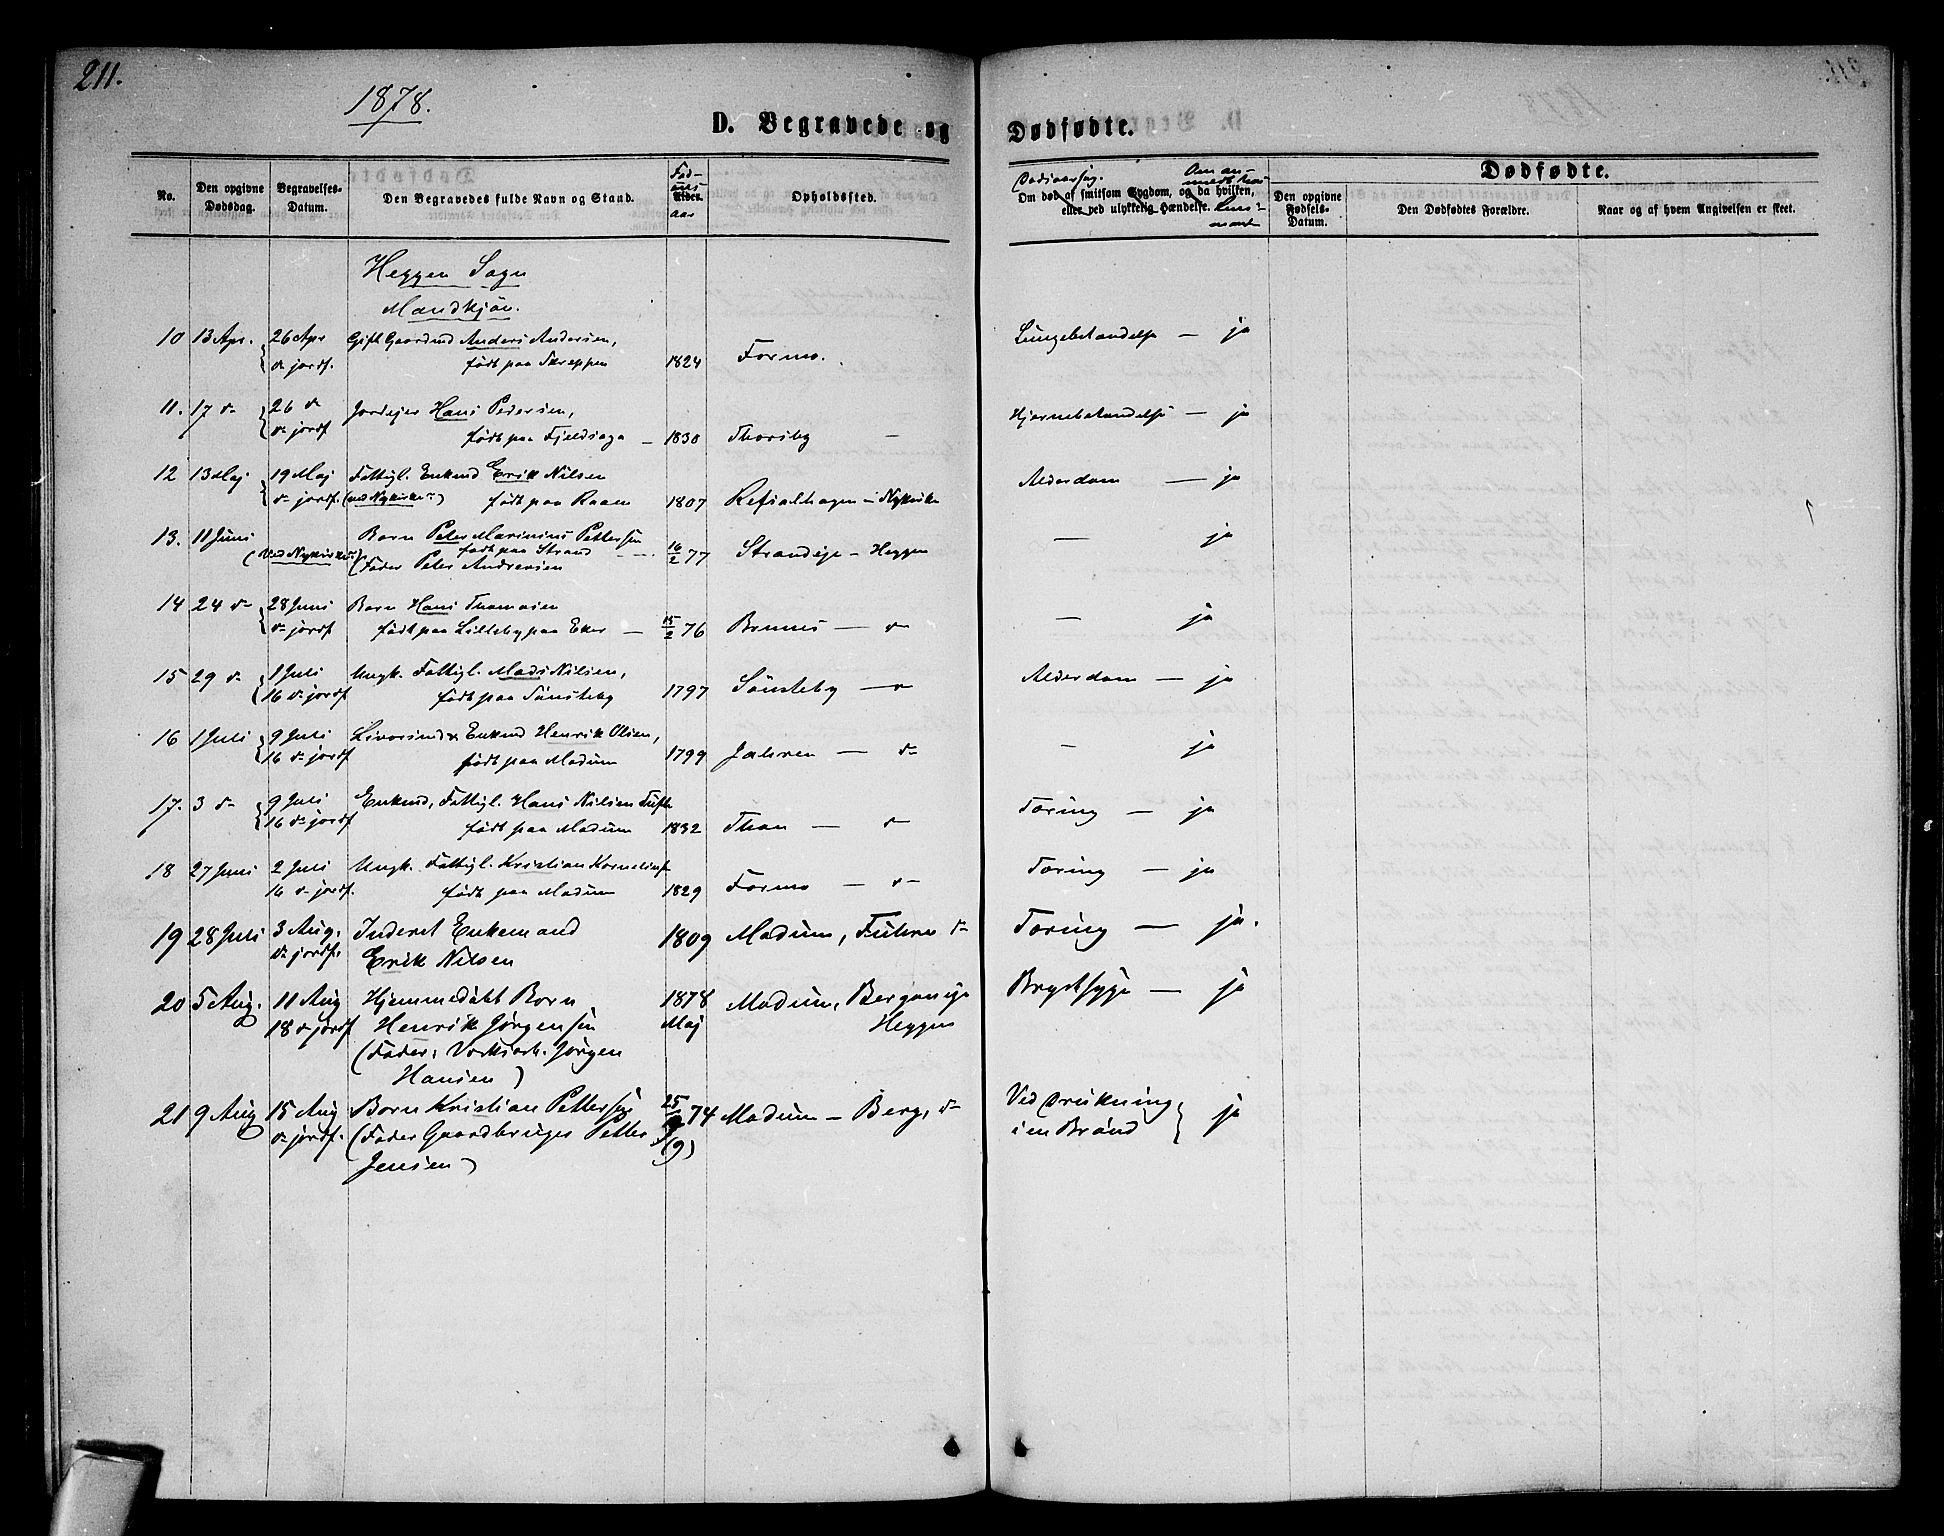 211.
1878.
D. Begravede og Dødfødte.
No.
Den opgivne Dødsdag.
Begravelses-Datum.
Den Begravedes fulde Navn og Stand.
Fød-
aar
Opholdssted.
Dødsaarsag.
Om død af smitsom Sygdom, og da hvilken,
eller ved ulykkelig Hændelse.
Dødfødte.
Den opgivne Fødsels-Datum.
Den Dødfødtes Forældre.
Naar og af hvem Angivelsen er skeet.
Heggen Sogn
Mandkjön.
10 13 Apr. 26 Apr Gift Gaardmd Anders Andersen,
d. jordf. født paa Skreppen 1824 Formo. Lungebetændelse — ja
11. 17 d. 26 d. Jordejer Hans Pedersen,
d. jordf født paa Fjeldsaga — 1830 Thorsby — Hjernebetændelse — ja
12 13 Maj. 19 Maj Fattigl. Enkemd Erik Nilsen
d. jordf. (ved Nykirke) født paa Raaen 1807 Refsalhagen — Nykirke Alderdom — ja
13. 11 Juni Barn Peter Marinius Pettersen
(ved Nykirke) født paa Strand — 16/2 77 Strandeje — Heggen — ja
(Fader Peter Andresen
14 24 d. 28 Juni Barn Hans Thomasen
d. jordf født paa Lilleby paa Eker — 15/2 76 Brunes — d. — ja
15 29 d. 1 Juli Ungk. Fattigl. Mads Nilsen,
16 d. jordf født paa Sønsteby 1797 Sönsteby — d. Alderdom — ja
16 1 Juli 9 Juli Livørsmd & Enkmd Henrik Olsen,
16 d. jordf født paa Modum 1799 Jahren — d. — ja
17. 3 d. 9 Juli Enkmd, Fattigl. Hans Nilsen Tufte
16 d. jordf født paa Modum 1832 Thon — d. Tæring — ja
18 27 Juni 2 Juli Ungk. Fattigl. Kristian Korneliusf
16 d. jordf. født paa Modum 1829 Formo — d. Tæring — ja
19 28 Juli 3 Aug. Inderst Enkemand 1809 Modum, Fuhre d. Tæring — ja.
d. jordf. Erik Nilsen
20 5 Aug. 11 Aug Hjemmedøbt Barn 1878 Modum, Berganeje Brystsyge — ja
18 d. jordf Henrik Jørgensen Maj Heggen
(Fader: Jørgen
Hansen)
21 9 Aug 15 Aug Barn Kristian Pettersen 25/9 74 Modum — Berg, d. Ved Drukning
d. jordf. (Fader Gaardbruger Petter (9) i en Brønd } ja
Jensen)